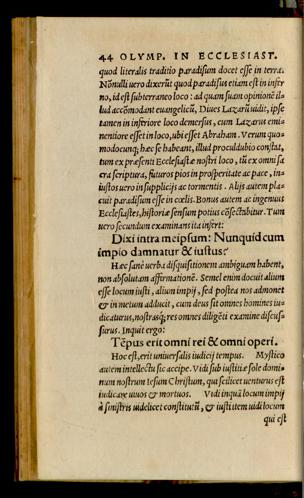 44 OLYMP. IN ECCLESIAST.
quod literalis traditio paradisum docet esse in terra.
Nõnulli uero dixerũt quod paradisus etiam est in infer
no, id est subterraneo loco: ad quam suam opinionẽ il-
lud accõmodant euangelicũ, Diues Lazarũ uidit, ipse
tamen in inferiore loco demersus, cum Lazarus emi-
nentiore esset in loco, ubi esset Abraham. Verum quo-
modocunq; hæc se habeant, illud proculdubio constat,
tum ex præsenti Ecclesiastæ nostri loco, tũ ex omni sa
cra scriptura, futuros pios in prosperitate ac pace, in-
iustos uero in supplicijs ac tormentis. Alijs autem pla-
cuit paradisum esse in cœlis. Bonus autem ac ingenuus
Ecclesiastes, historiæ sensum potius cõsectabitur. Tum
uero secundum examinans ita infert:
Dixi intra meipsum: Nunquid cum
impio damnatur & iustus?
Hæc sanè uerba disquisitionem ambiguam habent,
non absolutam affirmationẽ. Semel enim docuit alium
esse locum iusti, alium impij, sed postea nos admonet
& in metum adducit, cum deus sit omnes homines iu-
dicaturus, nostrasq; res omnes diligẽti examine discus-
surus. Inquit ergo:
Tẽpus erit omni rei & omni operi.
Hoc est, erit uniuersalis iudicij tempus. Mystico
autem intellectu sic accipe. Vidi sub iustitiæ sole domi-
num nostrum Iesum Christum, qui scilicet uenturus est
iudicare uiuos & mortuos. Vidi inquã locum impij
à sinistris uidelicet constitutũ, & iusti item uidi locum
qui est